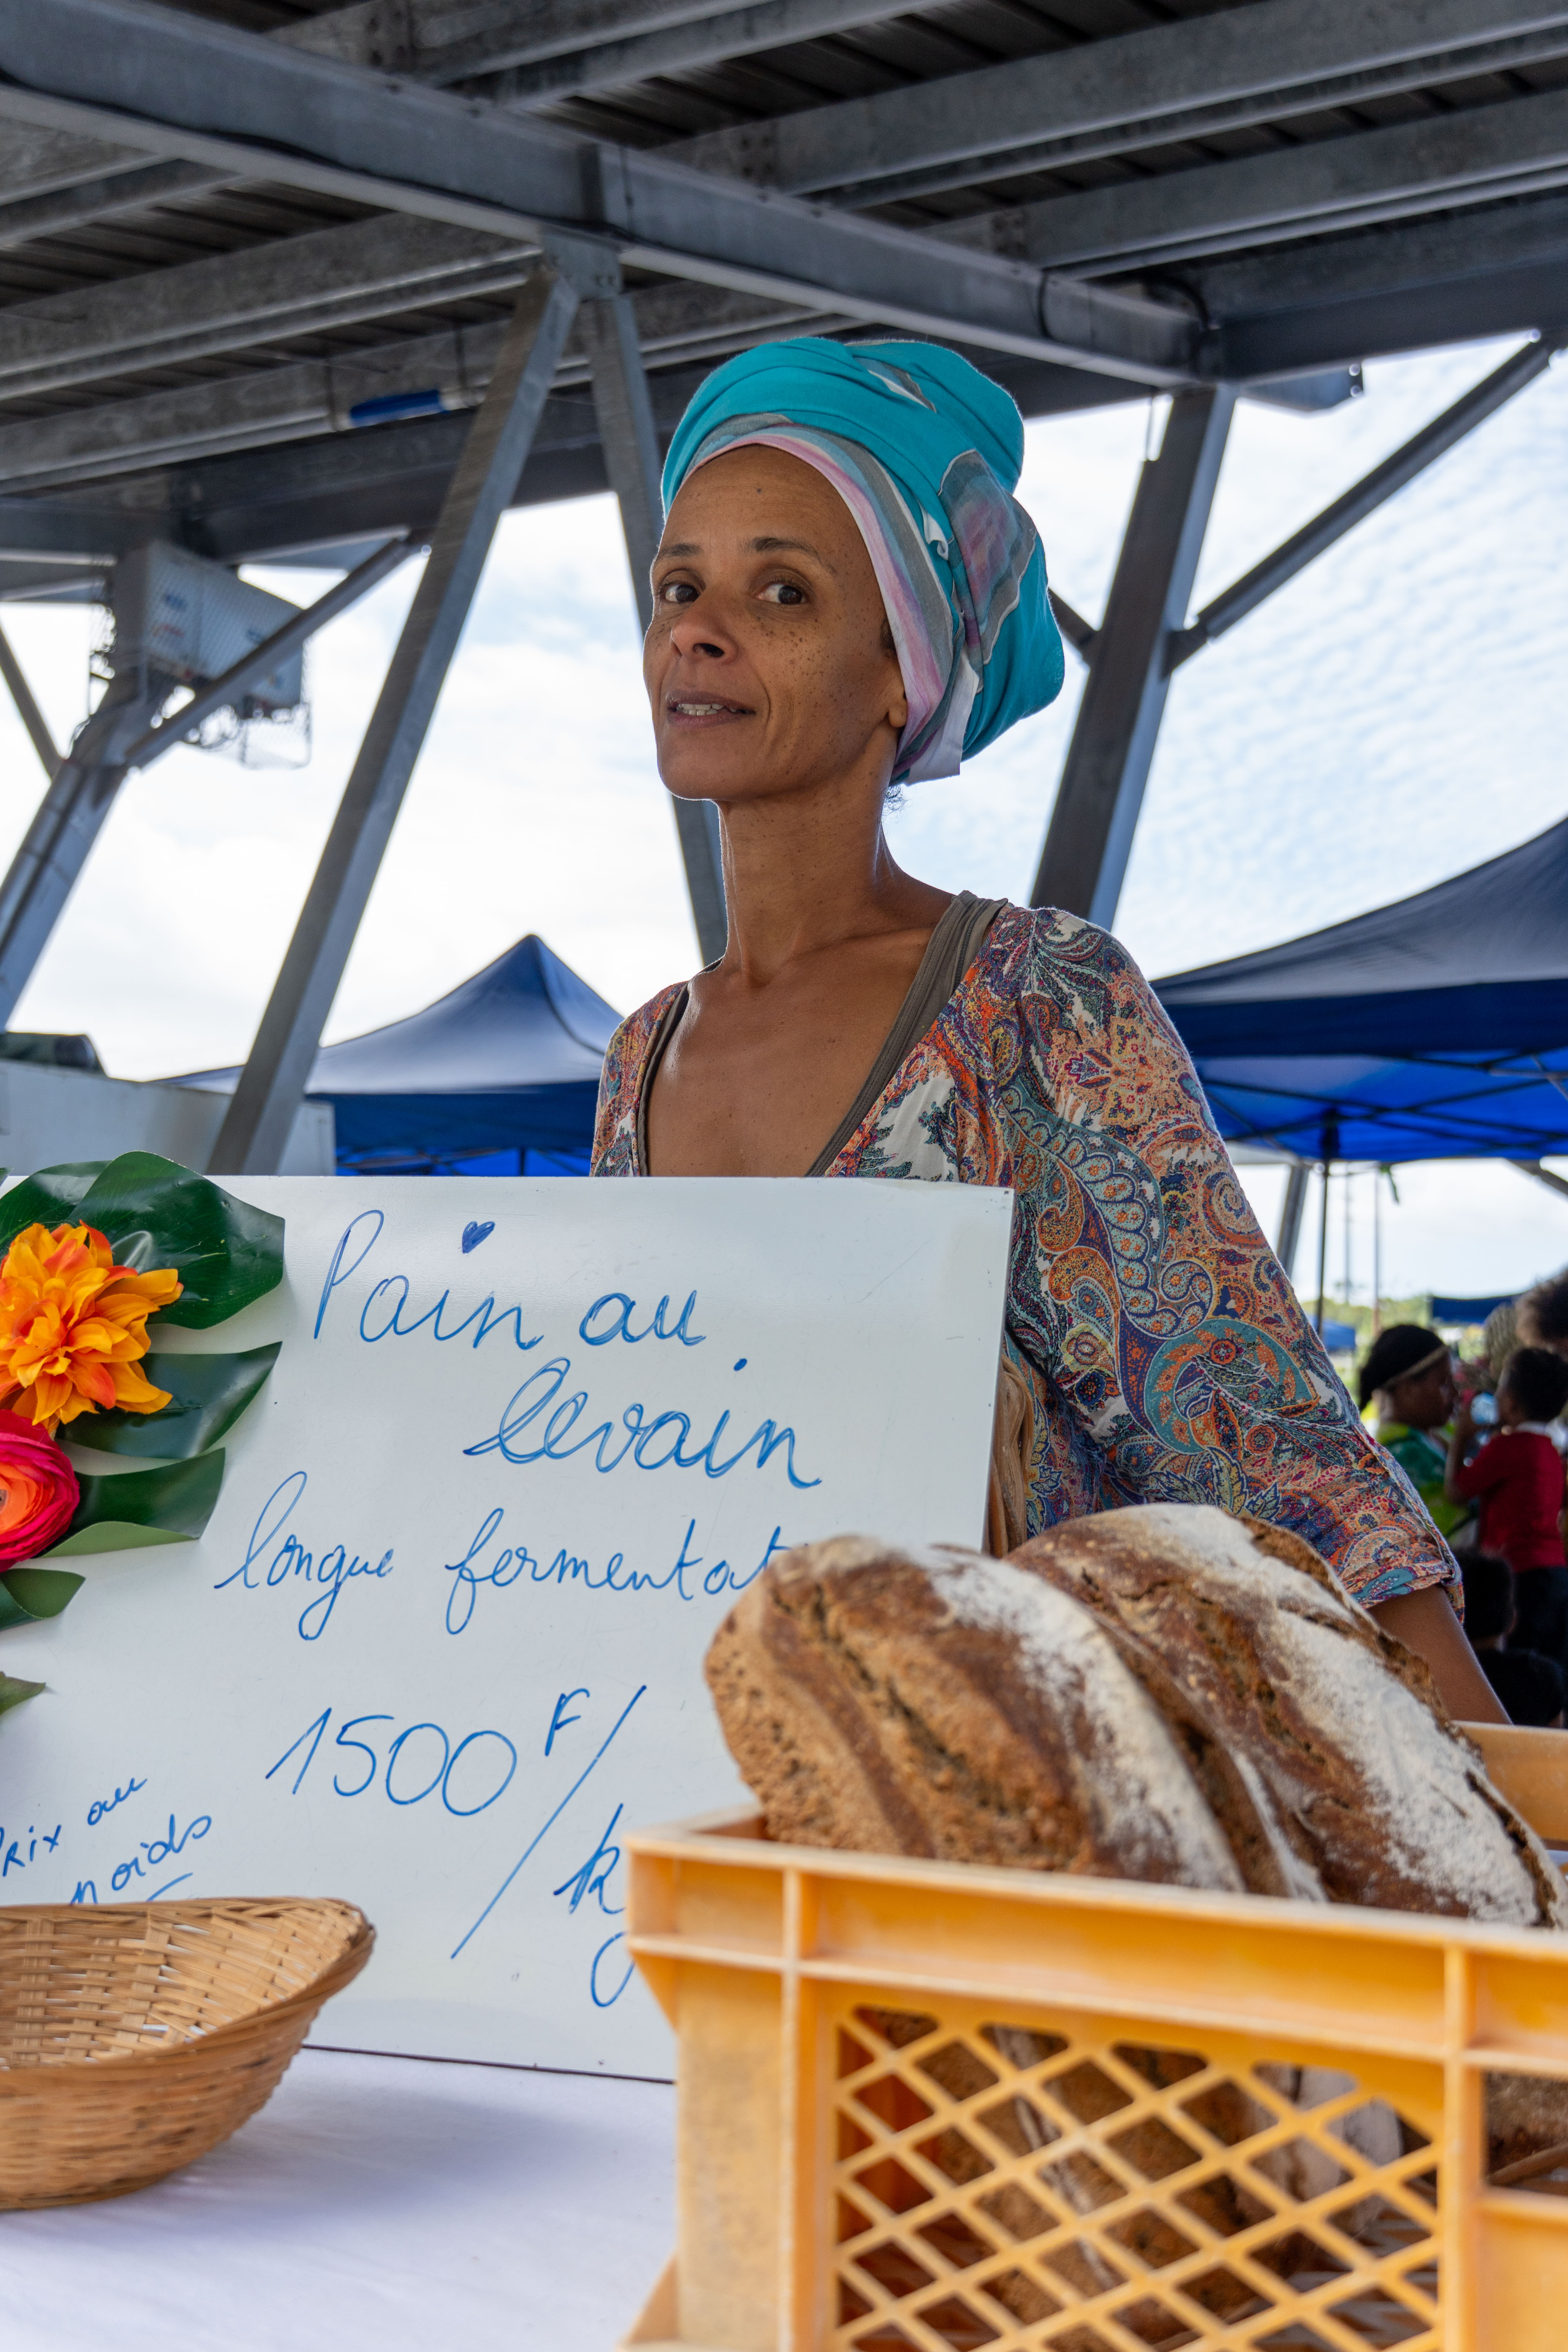 Pain au
levain
longue fermentat
1500 F/
kg
Prix au
poids